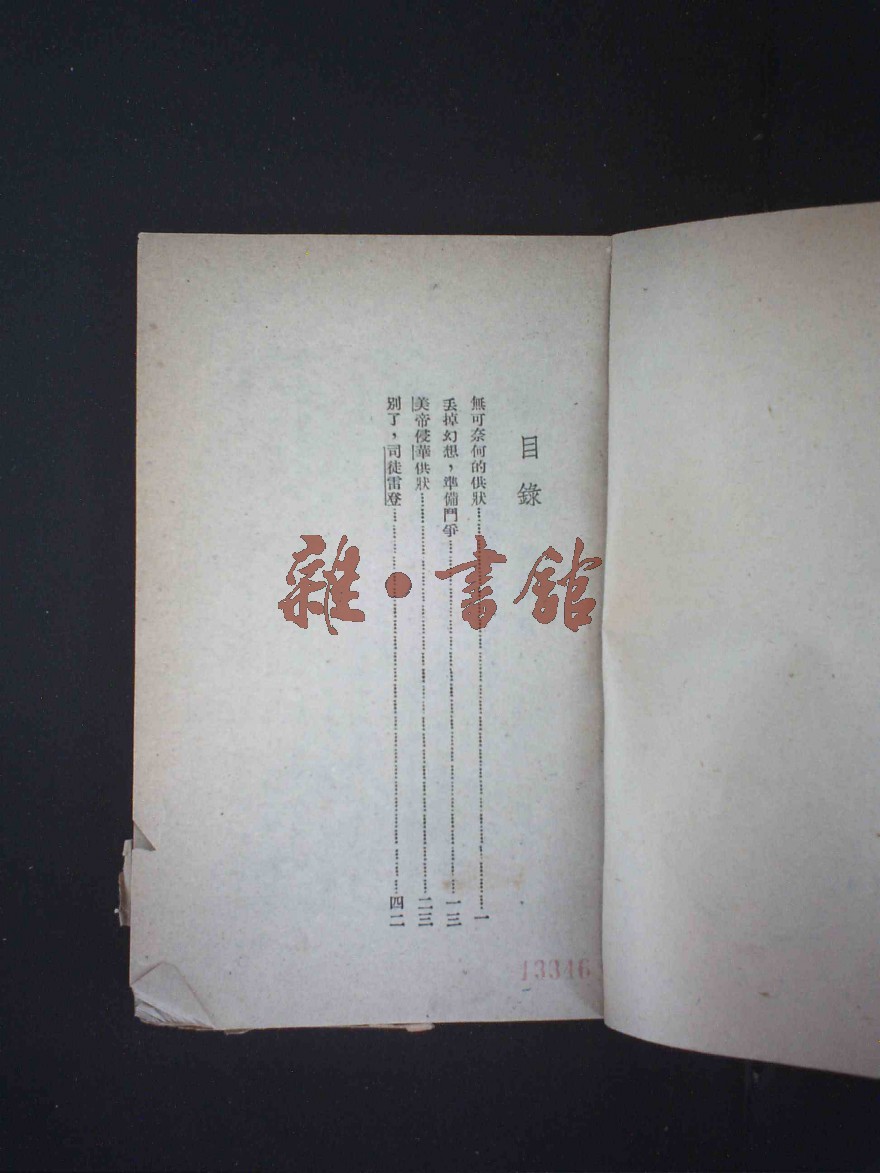 目錄
無可奈何的供狀……一
丟掉幻想，準備鬥爭……一三
美帝侵華供狀……二三
別了，司徒雷登……四二
雜·書館
13346